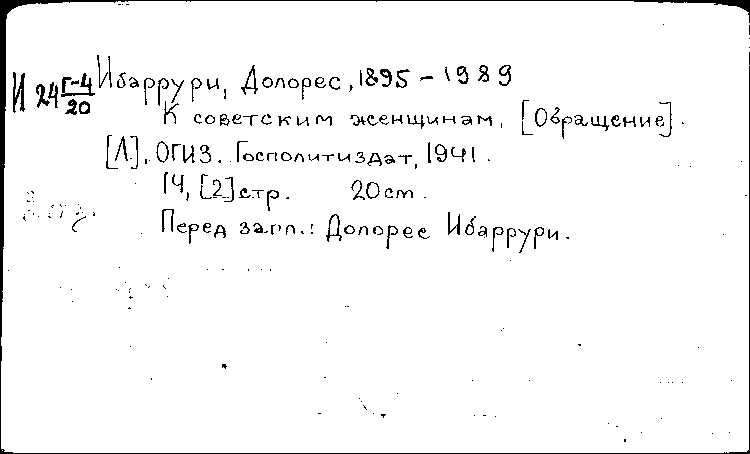 И 24 Г-4/20 Ибаррури, Долорес, 1895-1989
К советским женщинам. [Обращение].
[Л]. ОГИЗ. Госполитиздат, 1941.
14, [2] стр. 20 см.
Перед загл.: Долорес Ибаррури.